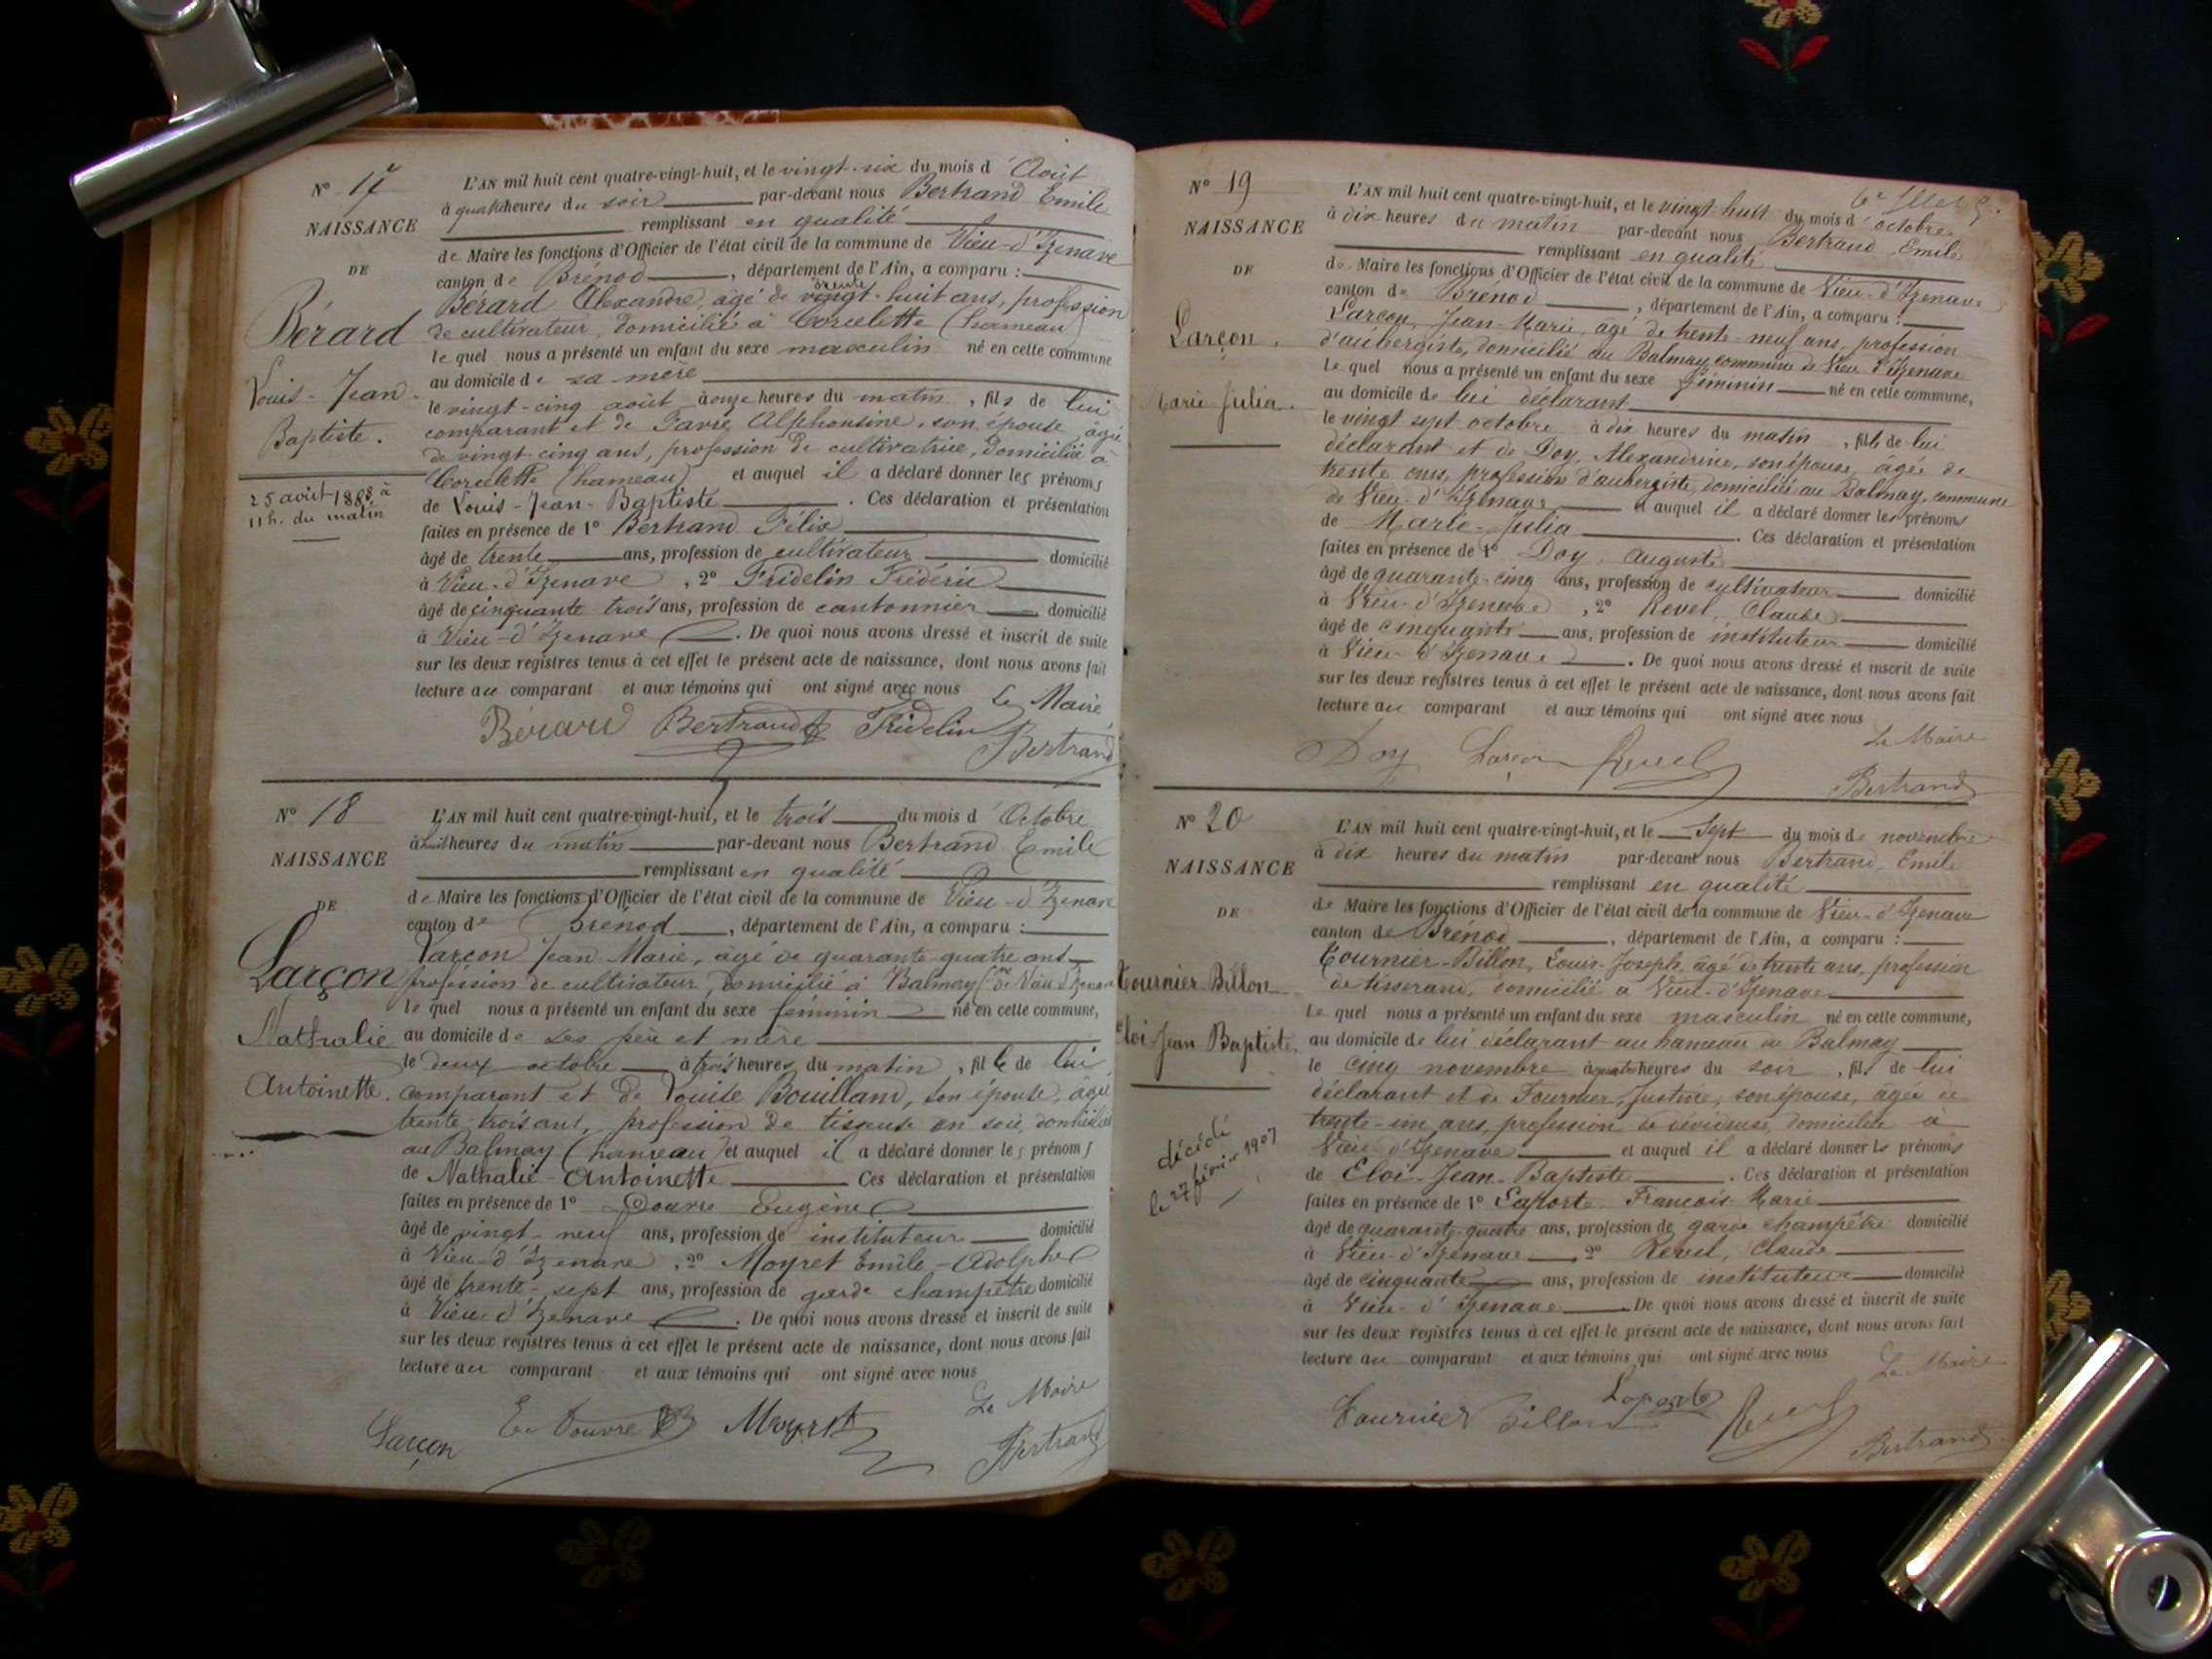 N° 17
NAISSANCE
DE
Bérard
Louis-Jean-
Baptiste.
25 août 1888 à
11h. du matin
L'AN mil huit cent quatre-vingt-huit, et le vingt-six du mois d'Août
à quatre heures du soir par-devant nous Bertrand Emile
remplissant en qualité
de Maire les fonctions d'Officier de l'état civil de la commune de Vieu-d'Izenave
canton de Brénod, département de l'Ain, a comparu :
trente
Bérard Alexandre, âgé de vingt-huit ans, profession
de cultivateur, domicilié à Corcelette (hameau)
lequel nous a présenté un enfant du sexe masculin né en cette commune
au domicile de sa mère
le vingt-cinq août à onze heures du matin, fils de lui
comparant et de Favre Alphonsine, son épouse âgée
de vingt-cinq ans, profession de cultivatrice, domiciliée à
Corcelette (hameau) et auquel il a déclaré donner les prénoms
de Louis-Jean-Baptiste. Ces déclaration et présentation
faites en présence de 1° Bertrand Félix
âgé de trente ans, profession de cultivateur domicilié
à Vieu-d'Izenave, 2° Fridelin Frédéric
âgé de cinquante-trois ans, profession de cantonnier domicilié
à Vieu-d'Izenave. De quoi nous avons dressé et inscrit de suite
sur les deux registres tenus à cet effet le présent acte de naissance, dont nous avons fait
lecture au comparant et aux témoins qui ont signé avec nous
Le Maire
Bérard Bertrand Fridelin
Bertrand
N° 18
NAISSANCE
DE
Larçon
Nathalie
Antoinette.
L'AN mil huit cent quatre-vingt-huit, et le trois du mois d'Octobre
à huit heures du matin par-devant nous Bertrand Emile
remplissant en qualité
de Maire les fonctions d'Officier de l'état civil de la commune de Vieu-d'Izenave
canton de Brénod, département de l'Ain, a comparu :
Larçon Jean Marie, âgé de quarante-quatre ans
profession de cultivateur, domicilié à Balmay (Cne de Vieu d'Izenave
lequel nous a présenté un enfant du sexe féminin né en cette commune,
au domicile de ses père et mère
le deux octobre à trois heures du matin, fille de lui
comparant et de Louise Bouilland, son épouse, âgée
trente-trois ans, profession de tisseuse en soie, domiciliée
au Balmay (hameau) et auquel il a déclaré donner les prénoms
de Nathalie-Antoinette Ces déclaration et présentation
faites en présence de 1° Douvre Eugène
âgé de vingt-neuf ans, profession de instituteur domicilié
à Vieu-d'Izenave, 2° Moyret Emile-Adolphe
âgé de trente-sept ans, profession de garde champêtre domicilié
à Vieu d'Izenave. De quoi nous avons dressé et inscrit de suite
sur les deux registres tenus à cet effet le présent acte de naissance, dont nous avons fait
lecture au comparant et aux témoins qui ont signé avec nous
Le Maire
Larçon E. Douvre Moyret
Bertrand
N° 19
NAISSANCE
DE
Larçon.
Marie-Julia.
L'AN mil huit cent quatre-vingt-huit, et le vingt-huit du mois d'octobre
à dix heures du matin par-devant nous Bertrand, Emile
remplissant en qualité
de Maire les fonctions d'Officier de l'état civil de la commune de Vieu-d'Izenave
canton de Brénod, département de l'Ain, a comparu :
Larçon, Jean-Marie, âgé de trente-neuf ans, profession
d'aubergiste, domicilié au Balmay, commune de Vieu-d'Izenave
Lequel nous a présenté un enfant du sexe féminin né en cette commune,
au domicile de lui déclarant
le vingt sept octobre à dix heures du matin, fille de lui
déclarant et de Doy, Alexandrine, son épouse, âgée de
trente ans, profession d'aubergiste, domiciliée au Balmay, commune
de Vieu-d'Izenave et auquel il a déclaré donner les prénoms
de Marie-Julia. Ces déclaration et présentation
faites en présence de 1° Doy, Auguste
âgé de quarante-cinq ans, profession de cultivateur domicilié
à Vieu-d'Izenave, 2° Revel, Claude
âgé de cinquante ans, profession de instituteur domicilié
à Vieu-d'Izenave. De quoi nous avons dressé et inscrit de suite
sur les deux registres tenus à cet effet le présent acte de naissance, dont nous avons fait
lecture au comparant et aux témoins qui ont signé avec nous
Le Maire
Doy Larçon Revel
Bertrand
N° 20
NAISSANCE
DE
Tournier-Billon
Eloi-Jean-Baptiste.
décédé
le 27 février 1907
L'AN mil huit cent quatre-vingt-huit, et le Sept du mois de novembre
à dix heures du matin par-devant nous Bertrand, Emile
remplissant en qualité
de Maire les fonctions d'Officier de l'état civil de la commune de Vieu-d'Izenave
canton de Brénod, département de l'Ain, a comparu :
Tournier-Billon, Louis-Joseph, âgé de trente ans, profession
de tisserand, domicilié à Vieu-d'Izenave
Lequel nous a présenté un enfant du sexe masculin né en cette commune,
au domicile de lui déclarant au hameau de Balmay
le cinq novembre à quatre heures du soir, fils de lui
déclarant et de Fournier, Justine, son épouse, âgée de
trente-un ans, profession de dévideuse, domiciliée à
Vieu-d'Izenave et auquel il a déclaré donner les prénoms
de Eloi-Jean-Baptiste. Ces déclaration et présentation
faites en présence de 1° Laporte, François-Marie
âgé de quarante-quatre ans, profession de garde champêtre domicilié
à Vieu-d'Izenave 2° Revel, Claude
âgé de cinquante ans, profession de instituteur domicilié
à Vieu-d'Izenave. De quoi nous avons dressé et inscrit de suite
sur les deux registres tenus à cet effet le présent acte de naissance, dont nous avons fait
lecture au comparant et aux témoins qui ont signé avec nous
Le Maire
Tournier Billon Laporte Revel
Bertrand